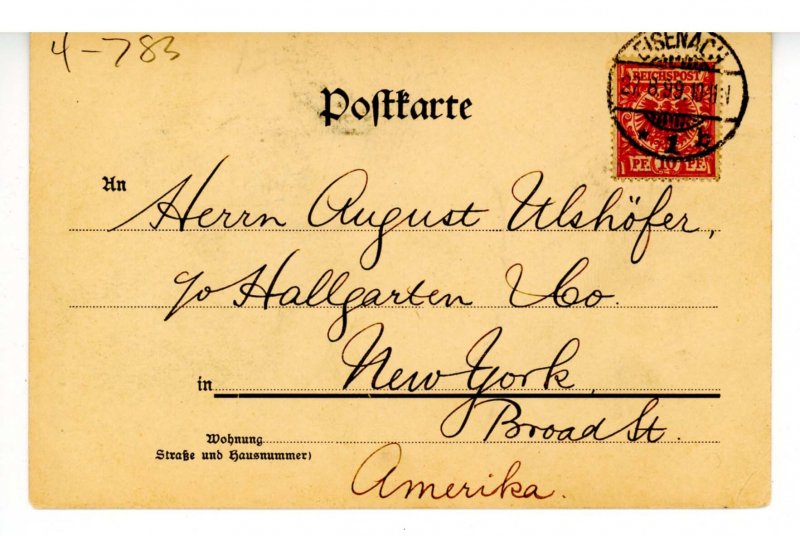 4-783
EISENACH
27.8.99
* 1 b
REICHSPOST
PF. 10 PF.
Postkarte
An
Herrn August Ulshöfer,
c/o Hallgarten & Co.
in New York,
Broad St.
Wohnung
(Straße und Hausnummer)
Amerika.